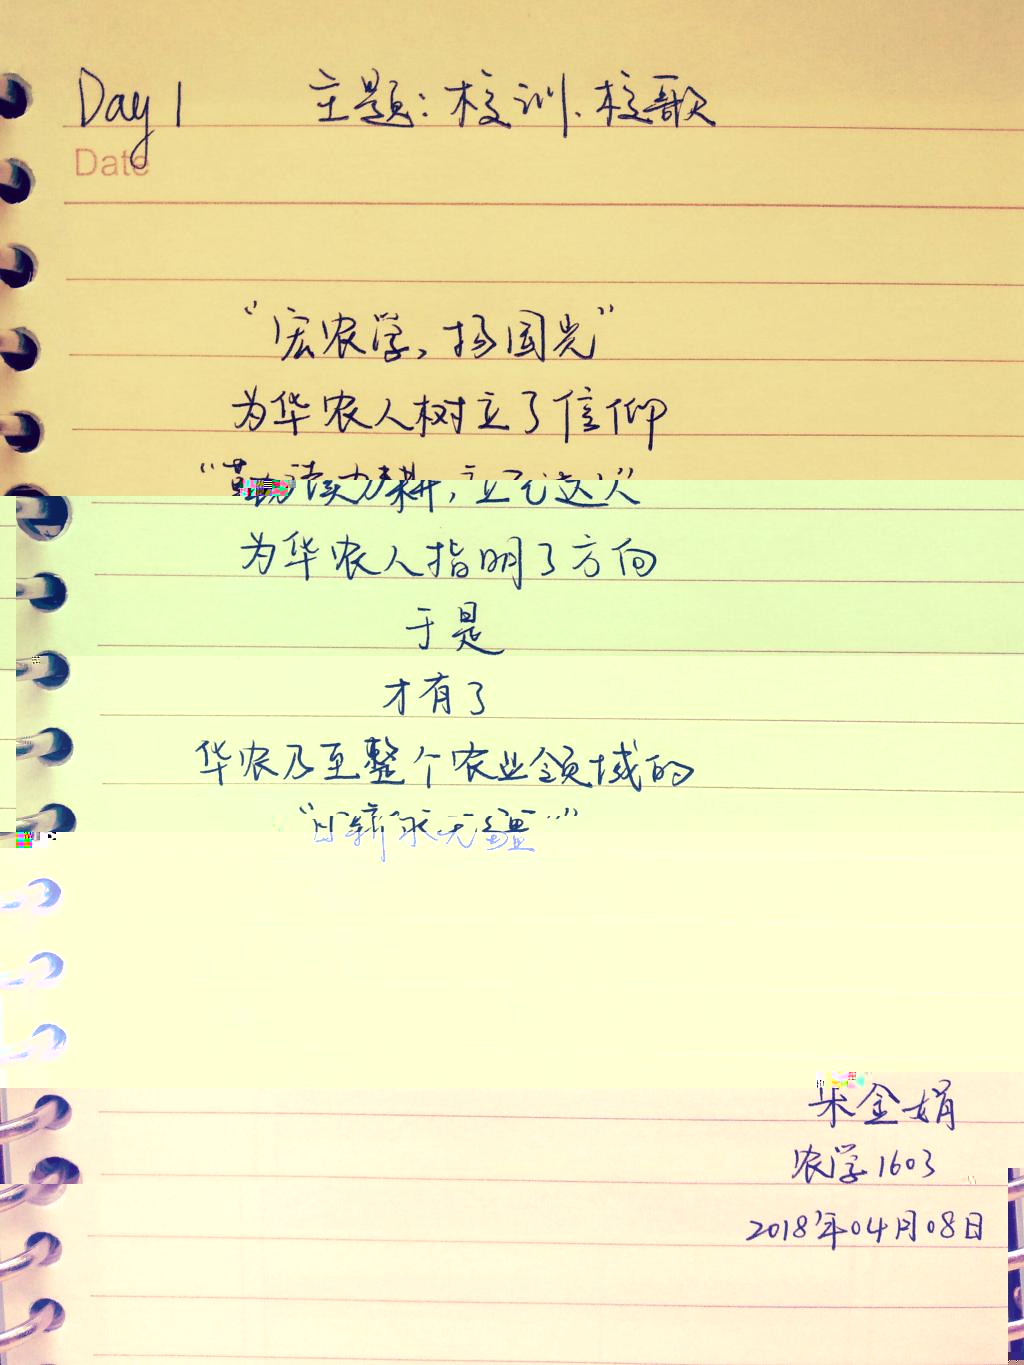 Day 1 主题：校训、校歌
Date
“宏农学，扬国光”
为华农人树立了信仰
“勤读力耕，立己达人”
为华农人指明了方向
于是
才有了
华农乃至整个农业领域的
“日新永无疆”
金娟
农学1603
2018年04月08日